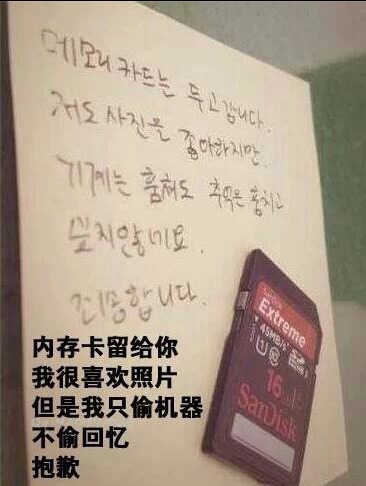 메모리 카드는 두고갑니다.
저도 사진을 좋아하지만.
기계는 훔쳐도 추억은 훔치고
싶지않네요.
죄송합니다.
SanDisk
Extreme
45MB/s
16
SanDisk
内存卡留给你
我很喜欢照片
但是我只偷机器
不偷回忆
抱歉